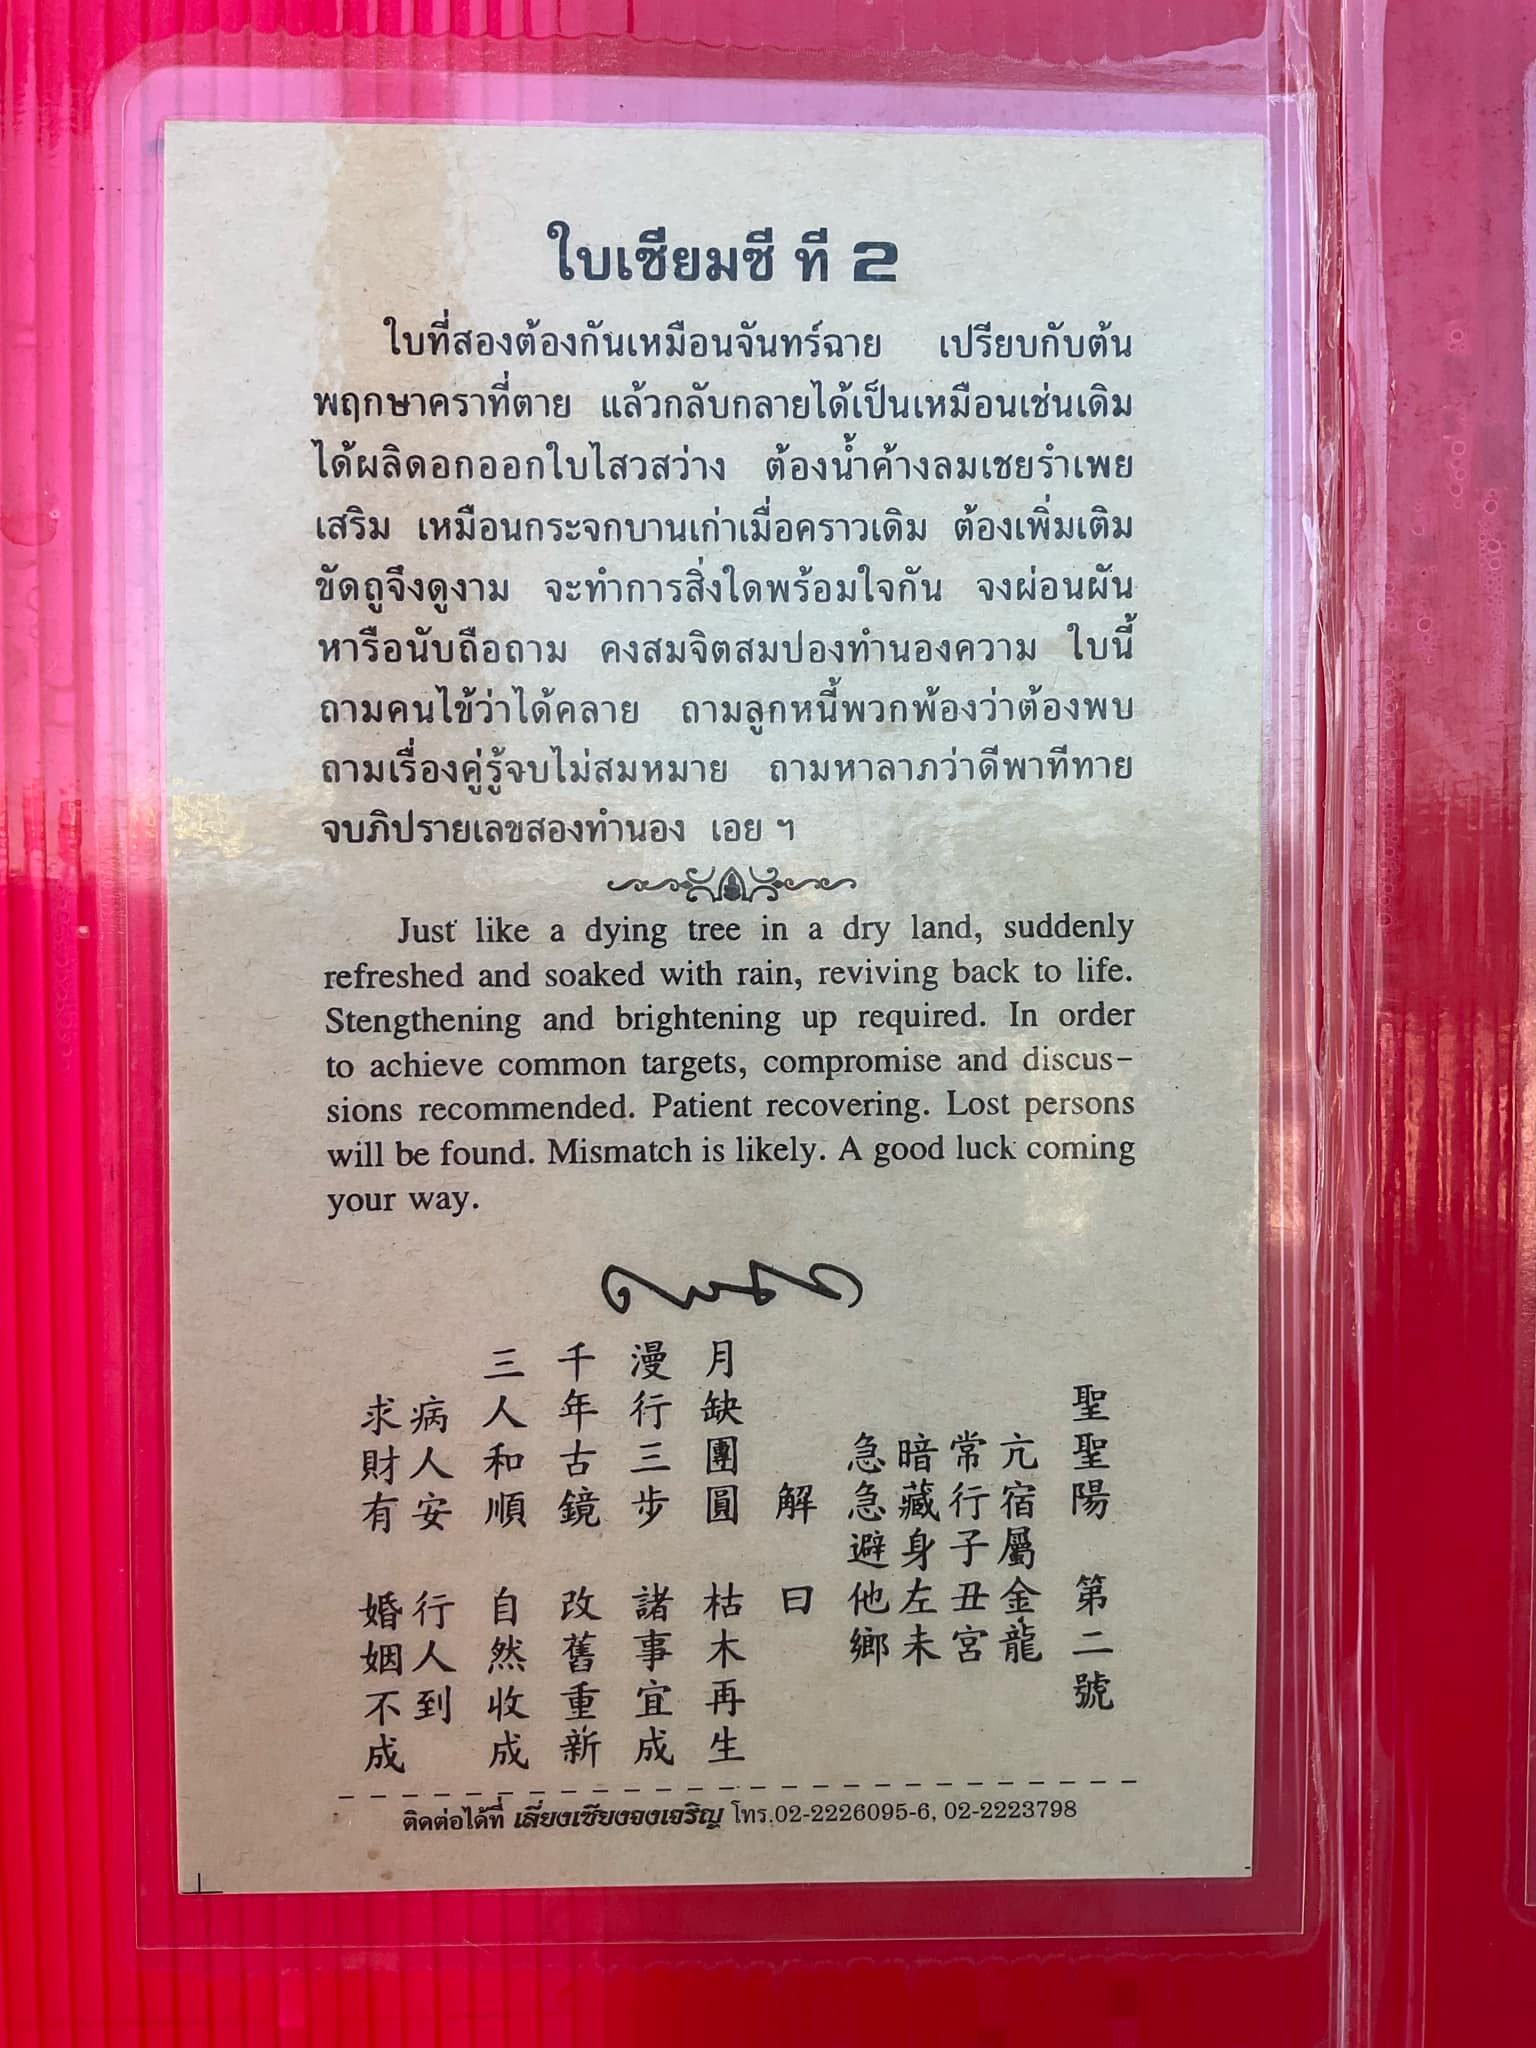 ใบเซียมซี ที่ 2
ใบที่สองต้องกันเหมือนจันทร์ฉาย เปรียบกับต้น
พฤกษาคราที่ตาย แล้วกลับกลายได้เป็นเหมือนเช่นเดิม
ได้ผลิดอกออกใบไสวสว่าง ต้องน้ำค้างลมเชยรำเพย
เสริม เหมือนกระจกบานเก่าเมื่อคราวเดิม ต้องเพิ่มเติม
ขัดถูจึงดูงาม จะทำการสิ่งใดพร้อมใจกัน จงผ่อนผัน
หารือนับถือถาม คงสมจิตสมปองทำนองความ ใบนี้
ถามคนไข้ว่าได้คลาย ถามลูกหนี้พวกพ้องว่าต้องพบ
ถามเรื่องคู่รู้จบไม่สมหมาย ถามหาลาภว่าดีพาทีทาย
จบภิปรายเลขสองทำนอง เอย ฯ
Just like a dying tree in a dry land, suddenly
refreshed and soaked with rain, reviving back to life.
Stengthening and brightening up required. In order
to achieve common targets, compromise and discus-
sions recommended. Patient recovering. Lost persons
will be found. Mismatch is likely. A good luck coming
your way.
聖聖陽 第二號
亢宿屬金龍
常行子丑宮
暗藏身左未
急急避他鄉
解曰
月缺團圓 枯木再生
漫行三步 諸事宜成
千年古鏡 改舊重新
三人和順 自然收成
病人安 行人到
求財有 婚姻不成
ติดต่อได้ที่ เลี่ยงเซียงจงเจริญ โทร.02-2226095-6, 02-2223798